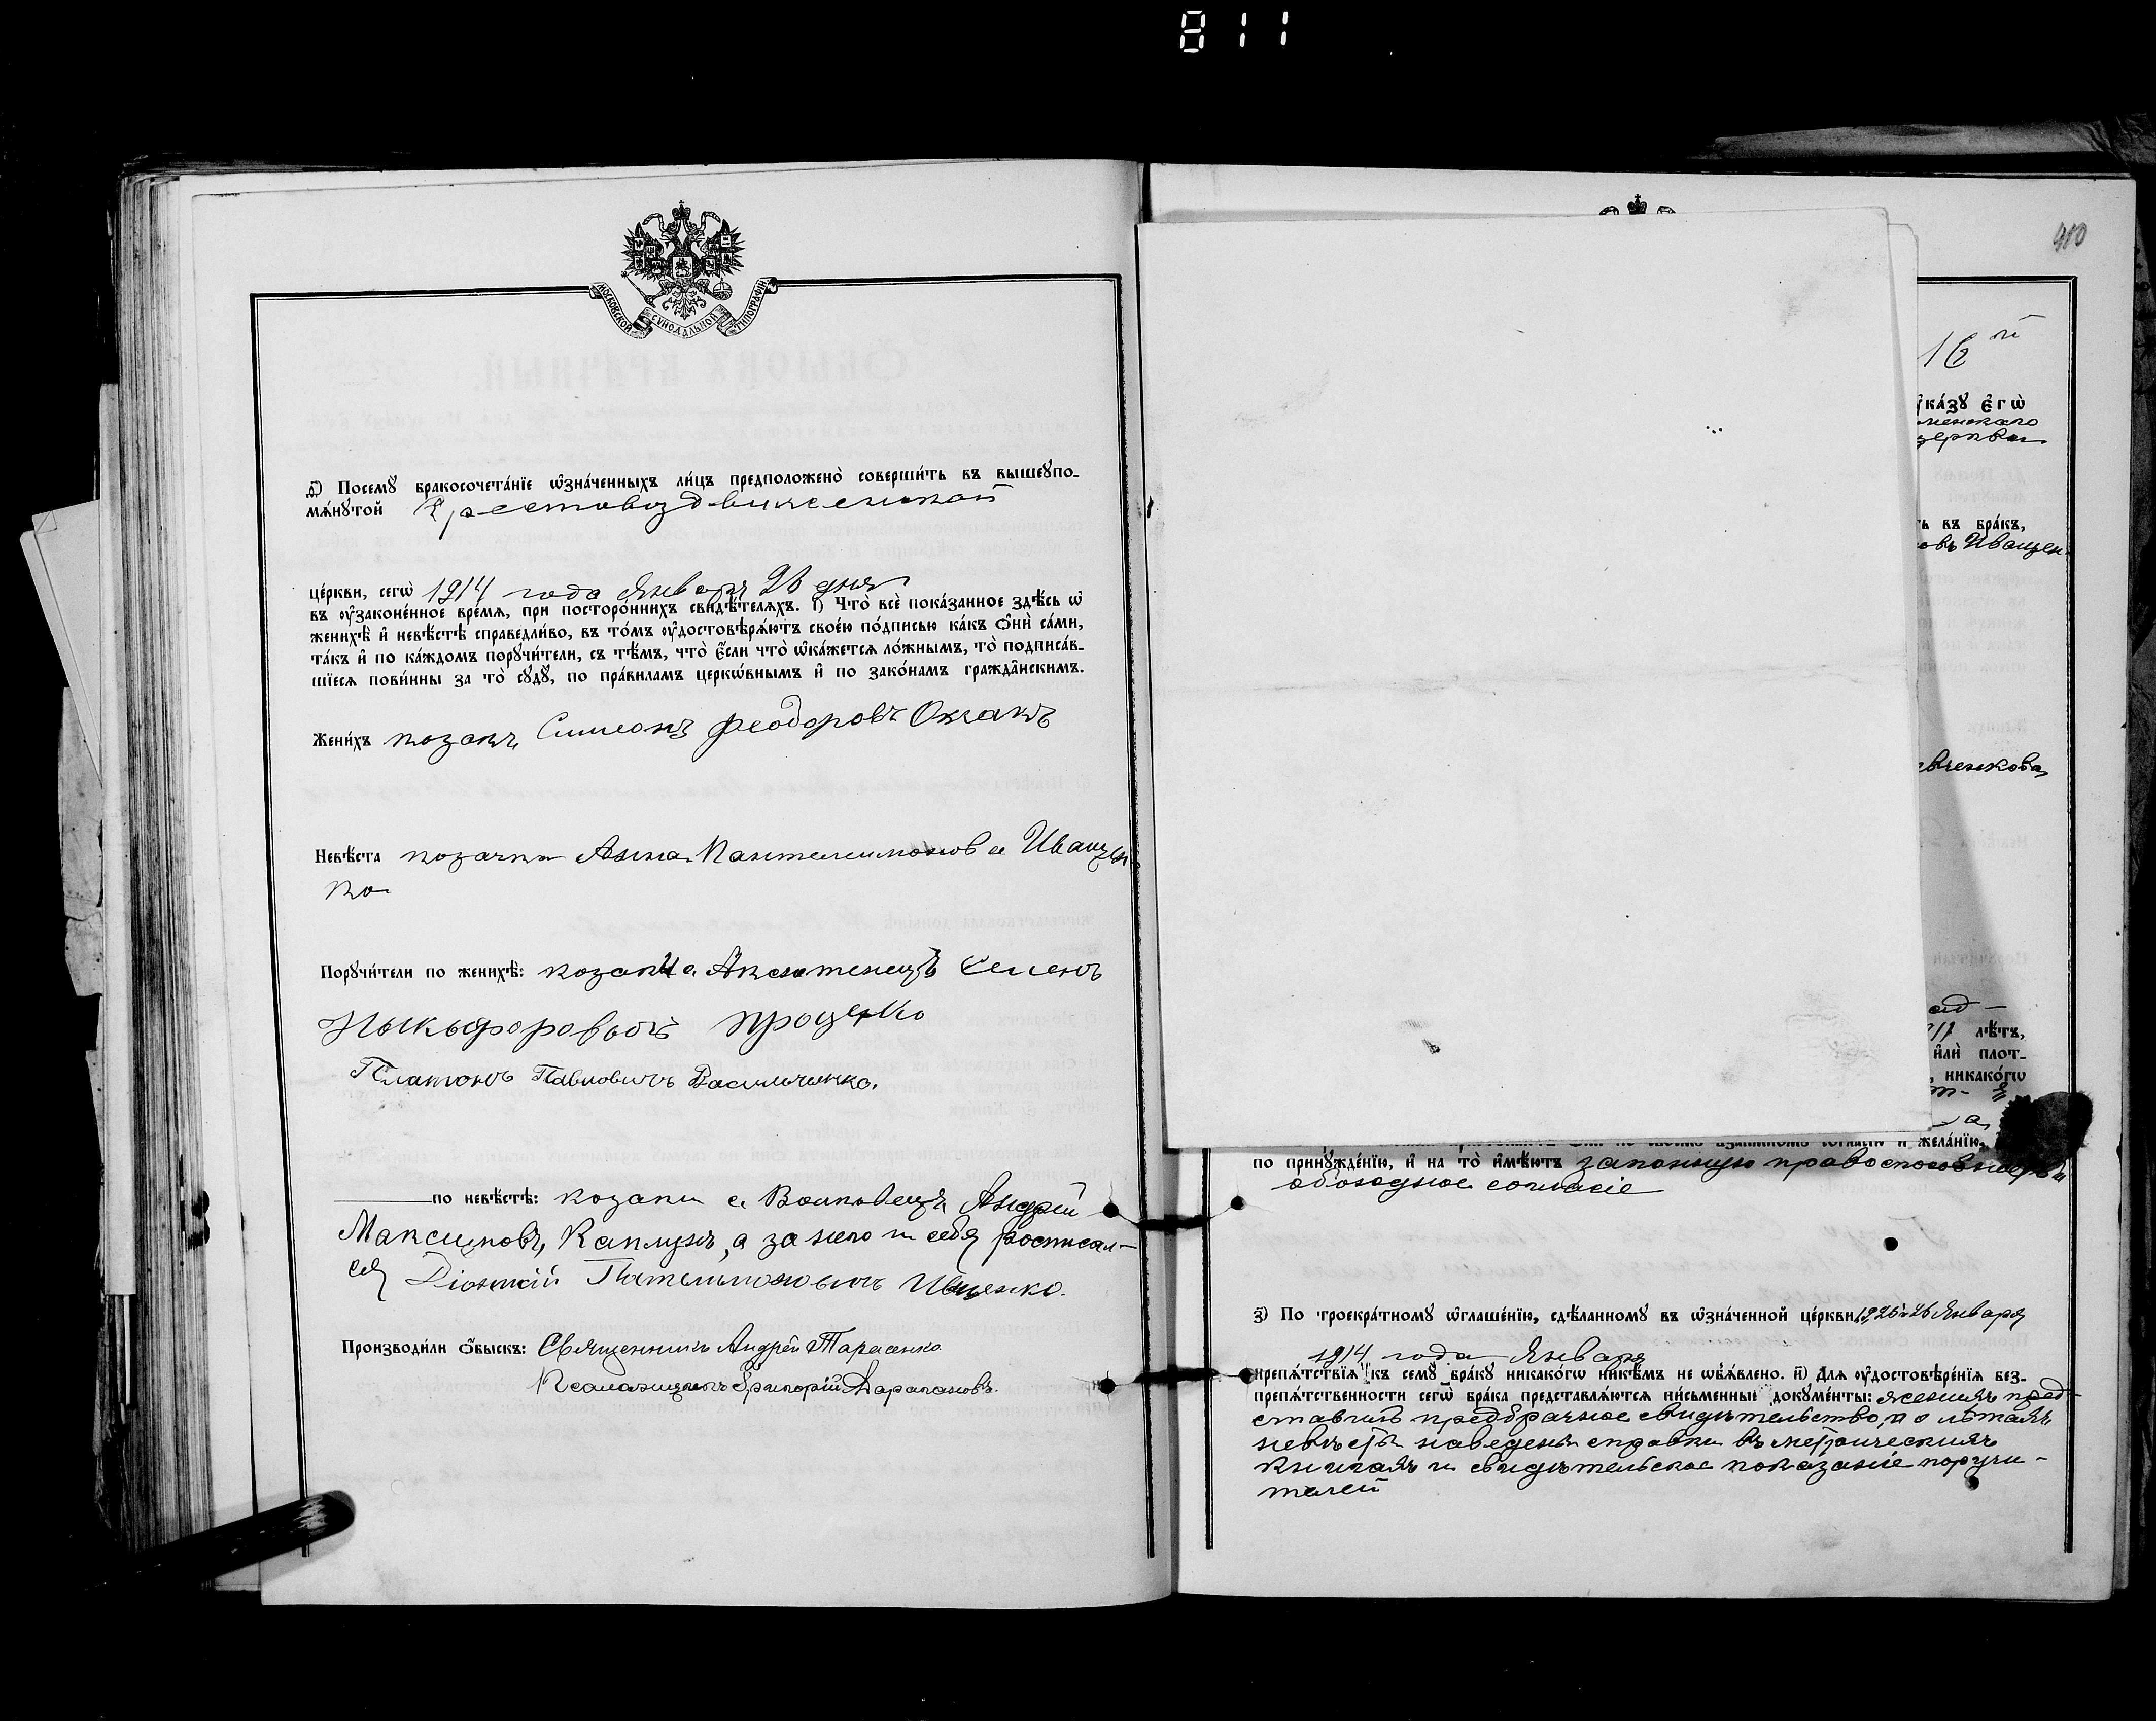 811
МОСКОВСКОЙ СѴНОДАЛЬНОЙ ТИПОГРАФІИ
Посемꙋ̀ бракосочета́нїе ѡ҆зна́ченныхъ ли́цъ предположено̀ соверши́ть въ вышеꙋпо-
мѧ́нꙋтой Крестовоздвиженской
це́ркви, сегѡ̀ 1914 года Января 26 дня
въ ᲂу҆законе́нное вре́мѧ, при посторо́ннихъ свидѣ́телѧхъ. і҃) Что̀ всѐ пока́занное здѣ́сь ѡ҆
женихѣ̀ и҆ невѣ́стѣ справедли́во, въ то́мъ ᲂу҆достовѣрѧ́ютъ свое́ю по́дписью ка́къ ѻ҆нѝ са́ми,
та́къ и҆ по ка́ждомъ порꙋчи́тели, съ тѣ́мъ, что̀ є҆́сли что̀ ѡ҆ка́жетсѧ ло́жнымъ, то̀ подписа́в-
шїесѧ пови́нны за то̀ сꙋдꙋ̀, по пра́виламъ церко́внымъ и҆ по зако́намъ гражда́нскимъ.
Жени́хъ козакъ Симеонъ Феодоровъ
Невѣ́ста козачка Анна Пантелеимонова Иващен
ко
Порꙋчи́тели по женихѣ̀: козаки с. Семенъ
Ныкыфоровычъ Проценко
Платонъ Павловичъ Васильченко.
по невѣ́стѣ: козаки с. Волковецъ Андрей
Максимовъ Каплунъ, а за него и себя росписал-
ся Иващенко.
Производи́ли ѻ҆́быскъ: Священникъ Андрей Тарасенко
Псаломщикъ Григорій
410
16й
ᲂу҆ка́зꙋ є҆гѡ̀
менскаго
церкви
ть въ бра́къ,
овъ Иващен
евченкова
лѣ́тъ,
и҆лѝ плот-
никако́гѡ
и҆ жела́нїю,
по принꙋжде́нїю, и҆ на то̀ и҆мѣ́ютъ законную правоспособность и
обоюдное согласіе
з҃) По троекра́тномꙋ ѡ҆глаше́нїю, сдѣ́ланномꙋ въ ѡ҆зна́ченной це́ркви 26 Января
1914 года Января
препѧ́тствїѧ къ семꙋ̀ бра́кꙋ никако́гѡ никѣ́мъ не ѡ҆б̾ѧ́влено. и҃) Длѧ ᲂу҆достовѣре́нїѧ без-
препѧ́тственности сегѡ̀ бра́ка представлѧ́ютсѧ пи́сьменные докꙋме́нты: женихъ пред-
ставилъ предбрачное свидѣтельство, а о лѣтахъ
невѣсты наведены справки въ метрическихъ
книгахъ и свидѣтельское показаніе поручи-
телей